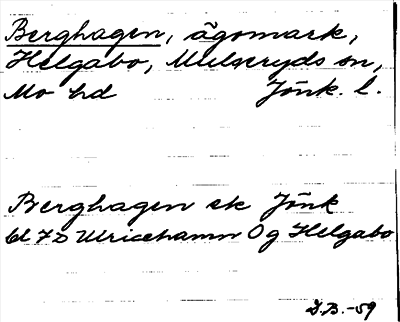 Berghagen, ägomark,
Helgabo, Mulseryds sn,
Mo hd Jönk. l.
Berghagen ek Jönk
bl 7D Ulricehamn Og Helgabo
I.B.-59